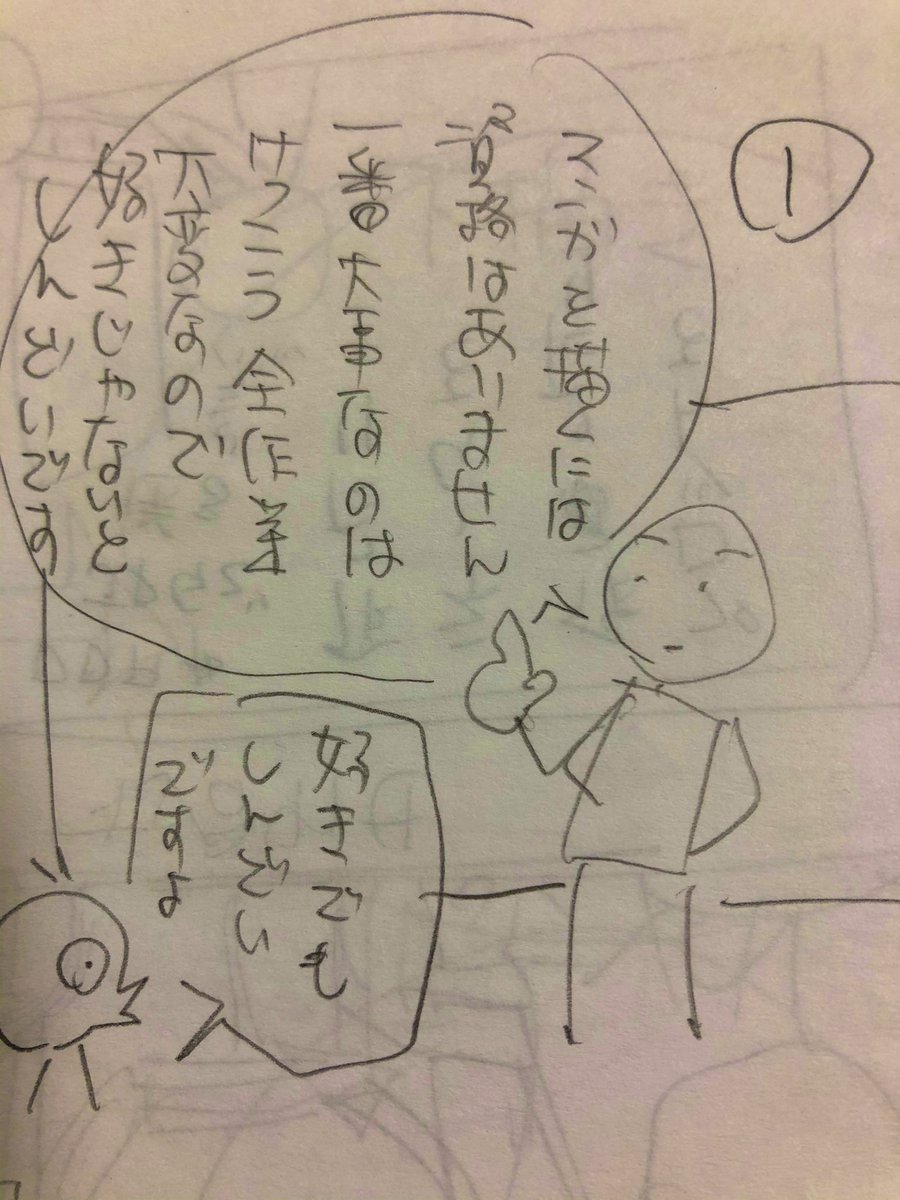 ①
マンガを描くには
はありません
一番大事なのは
けっこう全作業
大変なので
好きじゃないと
しんどいです
好きでも
しんどい
ですよ